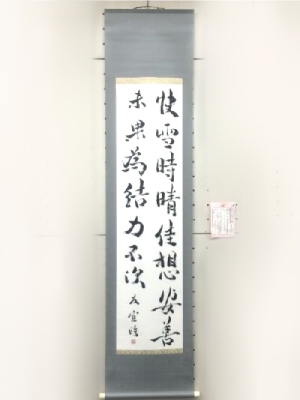 快雪時晴佳想安善
未果為結力不次